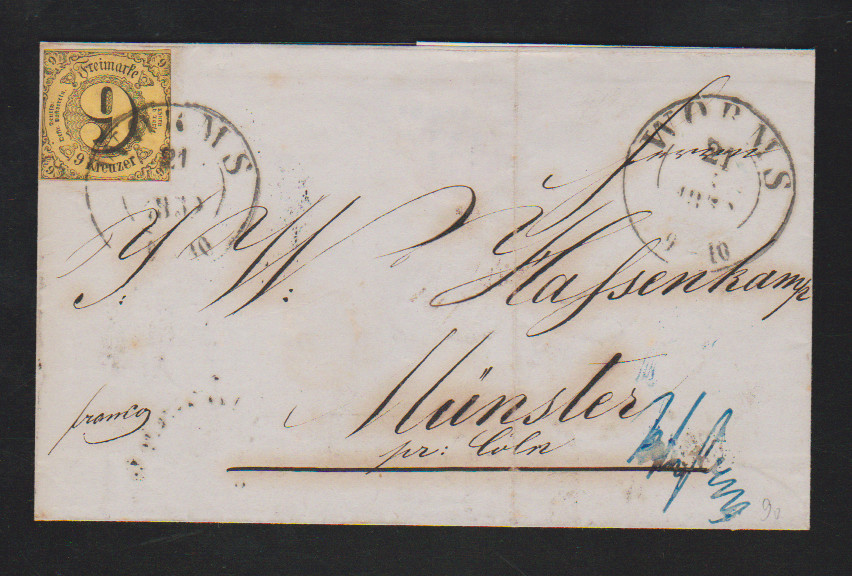 Freimarke
9
9 Kreuzer
WORMS
21
10
WORMS
21
9 - 10
Herrn
J. W. Hassenkamp
Münster
franco
pr: Cöln